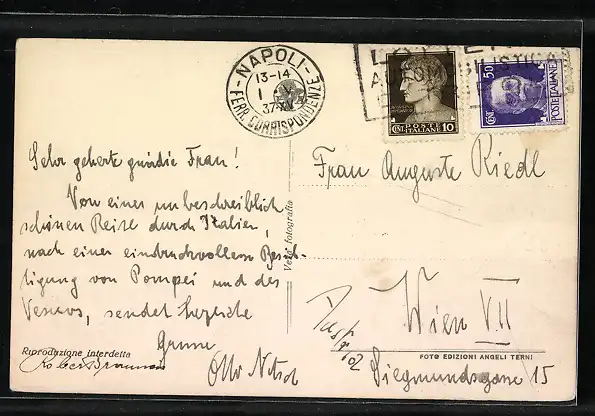 NAPOLI
13-14
1 V
37 XV
FERR. CORRISPONDENZE
POSTE ITALIANE
CENT. 10
CENT. 50
POSTE ITALIANE
Sehr geherte gnädie Frau!
Von einer unbeschreiblich
schönen Reise durch Italien,
nach einer eindruckvollem Besich-
tigung von Pompei und des
Vesuvs, sendet herzliche
Grüsse
Otto
Frau Auguste Riedl
Wien VII
Siegmundsgasse 15
Vera fotografia
Riproduzione interdetta
FOTO EDIZIONI ANGELI TERNI